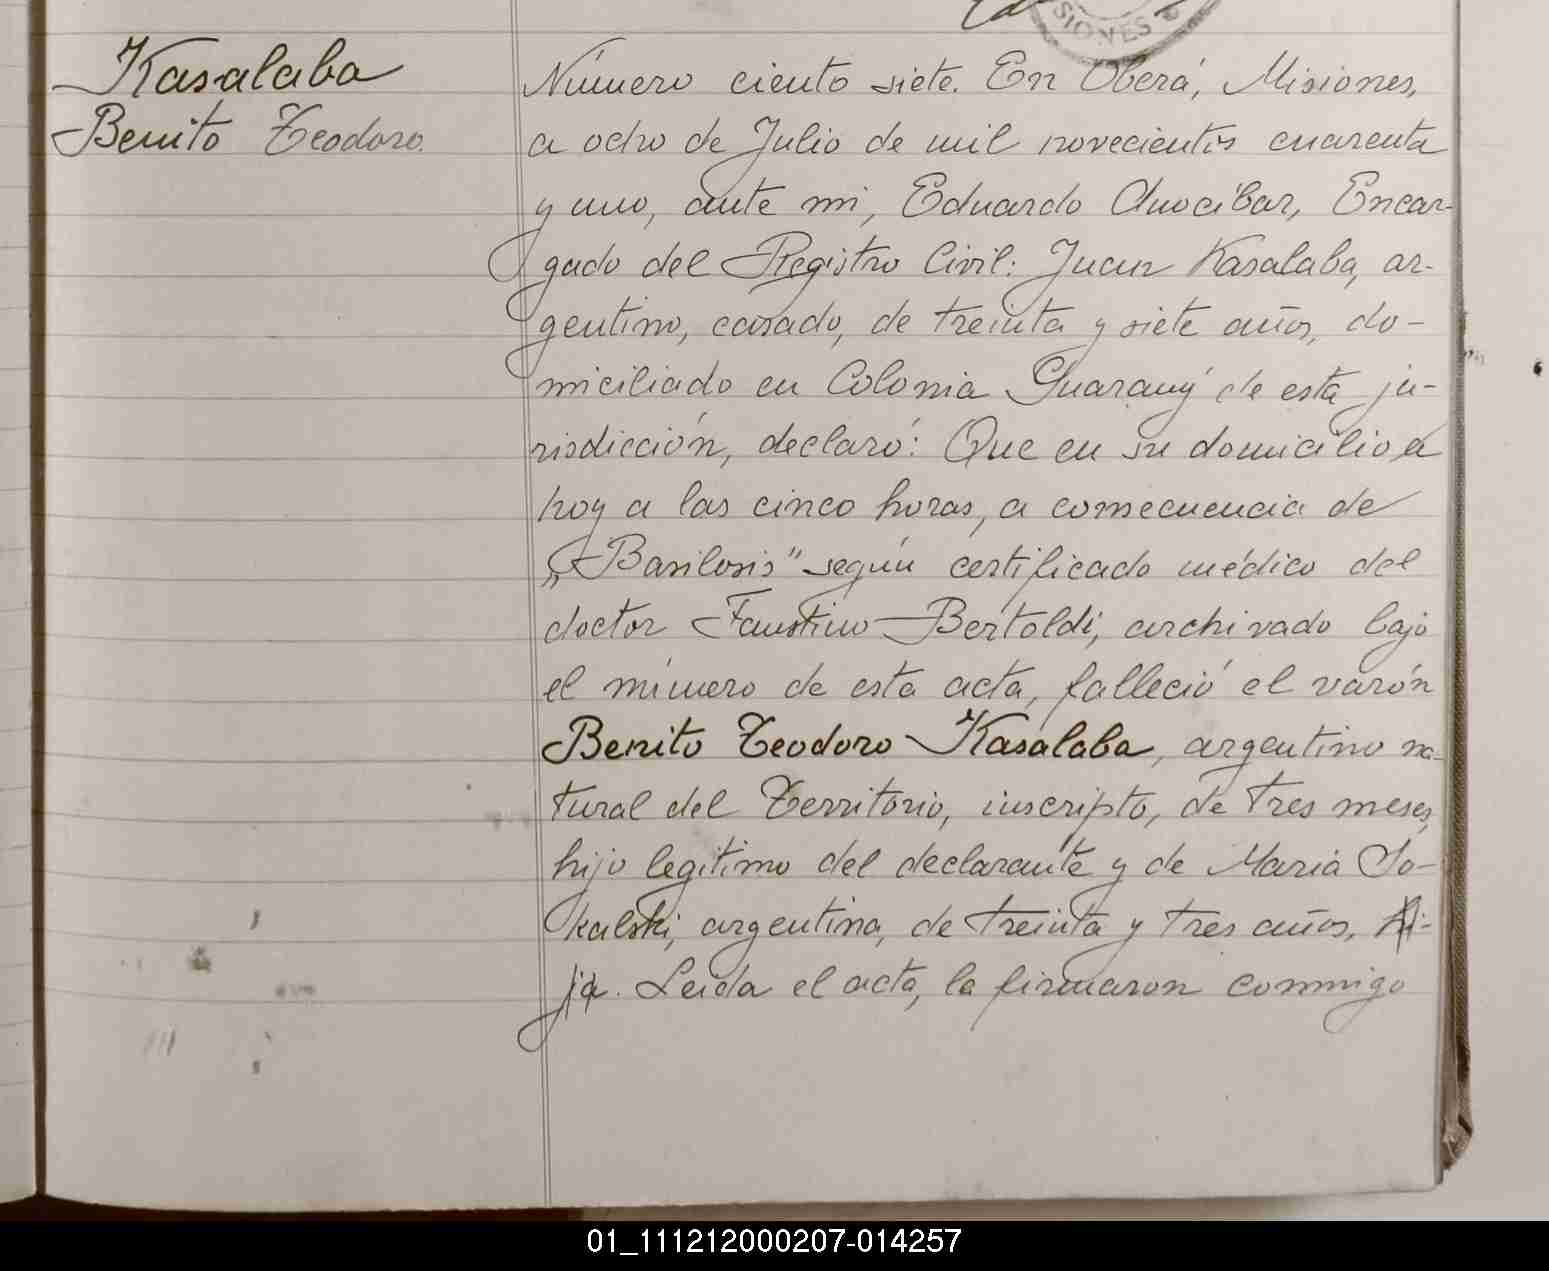 SIONES
Kasalaba
Benito Teodoro.
Número ciento siete. En Oberá, Misiones,
a ocho de Julio de mil novecientos cuarenta
y uno, ante mi, Eduardo Anocibar, Encar-
gado del Registro Civil: Juan Kasalaba, ar-
gentino, casado, de treinta y siete años, do-
miciliado en Colonia Guarany de esta ju-
risdicción, declaró: Que en su domicilio el
hoy a las cinco horas, a consecuencia de
„Basilosis" según certificado médico del
doctor Faustino Bertoldi, archivado bajo
el número de esta acta, falleció el varón
Benito Teodoro Kasalaba, argentino na-
tural del Territorio, inscripto, de tres meses,
hijo legitimo del declarante y de Maria So-
kalski, argentina, de treinta y tres años, hi-
ja. Leida el acta, la firmaron conmigo
01_111212000207-014257